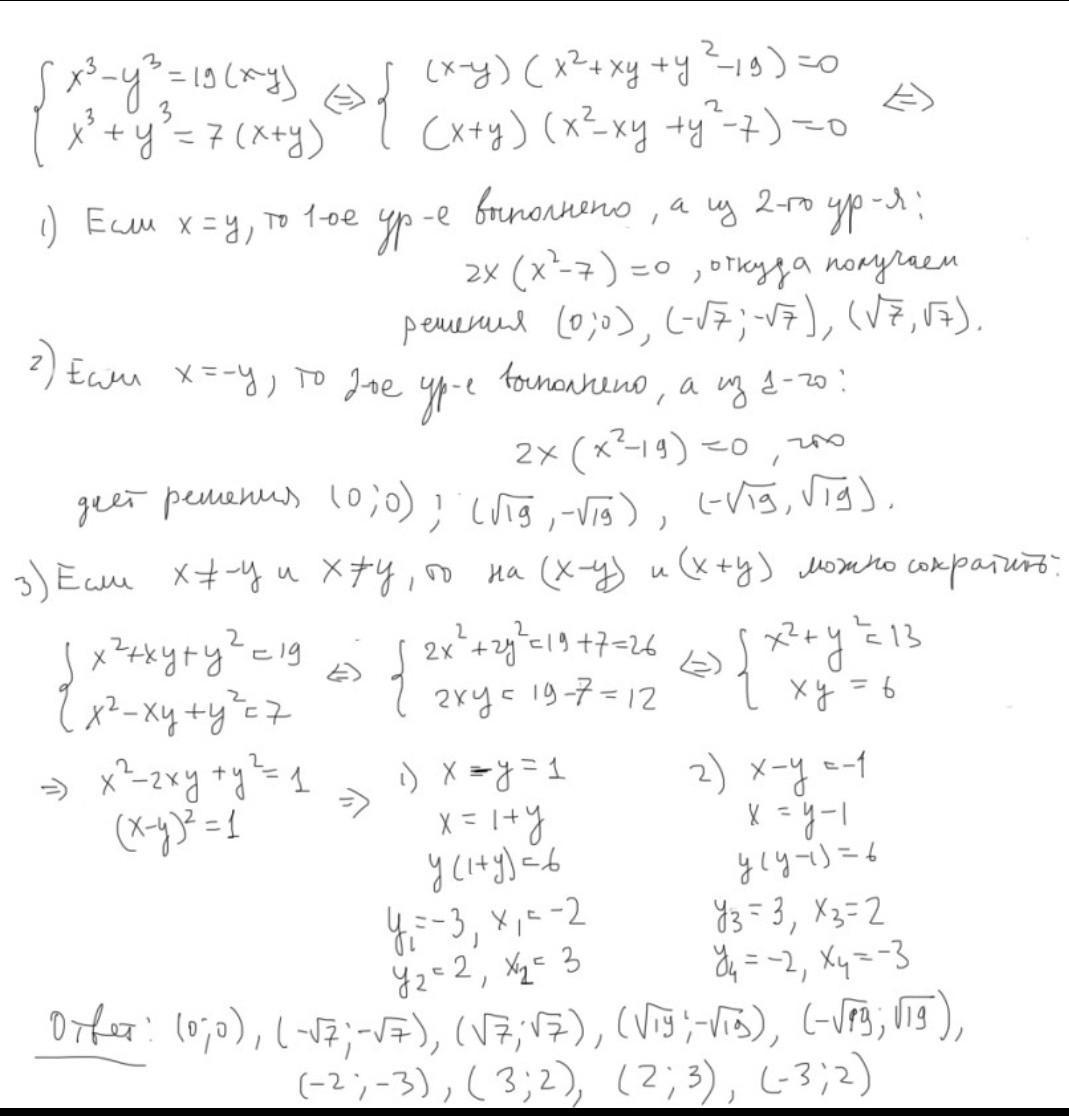 { x³-y³=19(x-y) ⇔ { (x-y)(x²+xy+y²-19)=0 ⇔
{ x³+y³=7(x+y) { (x+y)(x²-xy+y²-7)=0
1) Если x=y, то 1-ое ур-е выполнено, а из 2-го ур-я:
2x(x²-7)=0, откуда получаем
решения (0;0), (-√7;-√7), (√7,√7).
2) Если x=-y, то 2-ое ур-е выполнено, а из 1-го:
2x(x²-19)=0, что
дает решения (0;0); (√19,-√19), (-√19,√19).
3) Если x≠-y и x≠y, то на (x-y) и (x+y) можно сократить:
{ x²+xy+y²=19 ⇔ { 2x²+2y²=19+7=26 ⇔ { x²+y²=13
{ x²-xy+y²=7 { 2xy=19-7=12 { xy=6
⇒ x²-2xy+y²=1 ⇒ 1) x-y=1 2) x-y=-1
(x-y)²=1 x=1+y x=y-1
y(1+y)=6 y(y-1)=6
y₁=-3, x₁=-2 y₃=3, x₃=2
y₂=2, x₂=3 y₄=-2, x₄=-3
Ответ: (0;0), (-√7;-√7), (√7;√7), (√19;-√19), (-√19;√19),
(-2;-3), (3;2), (2;3), (-3;2)